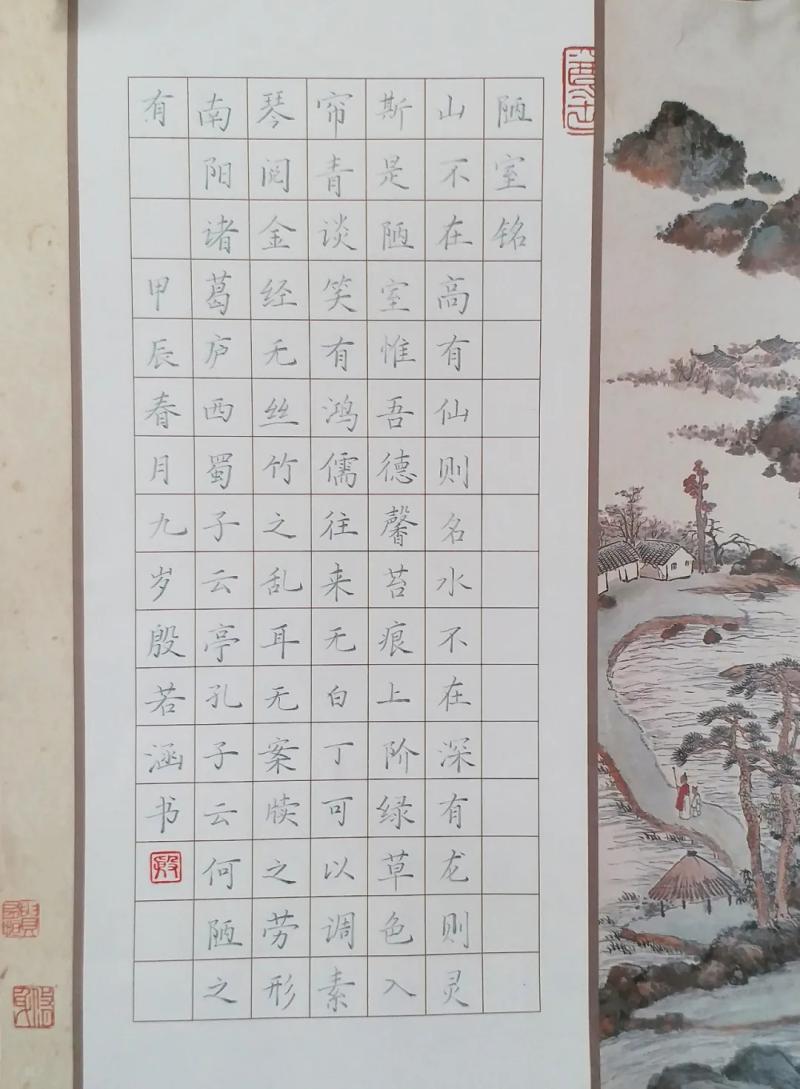 陋室铭
山不在高有仙则名水不在深有龙则灵
斯是陋室惟吾德馨苔痕上阶绿草色入
帘青谈笑有鸿儒往来无白丁可以调素
琴阅金经无丝竹之乱耳无案牍之劳形
南阳诸葛庐西蜀子云亭孔子云何陋之
有 甲辰春月九岁殷若涵书
殷